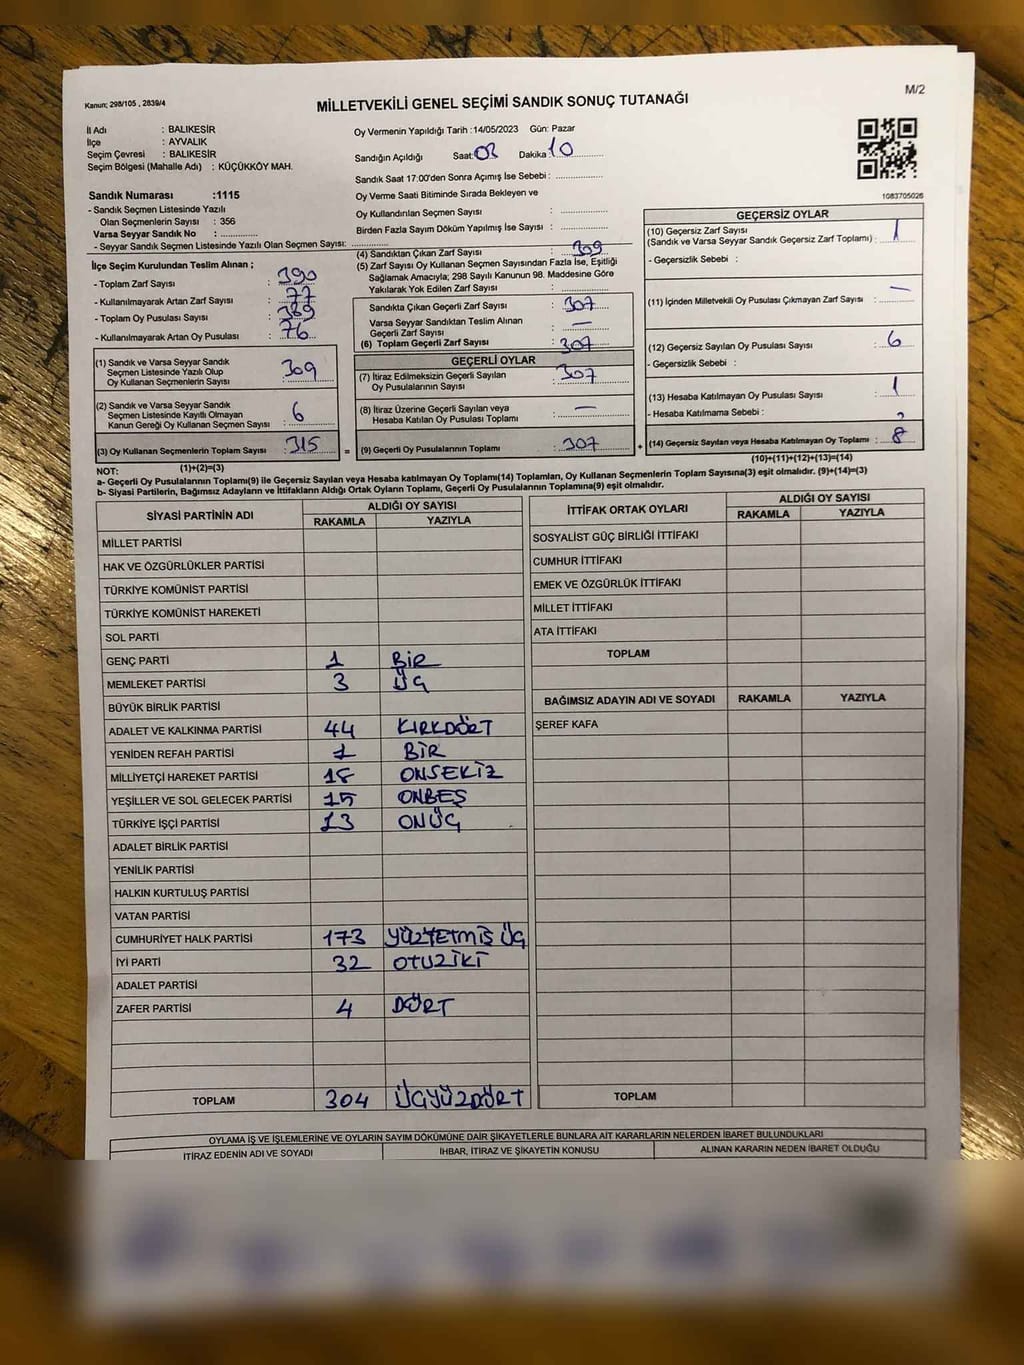 Kanun; 298/105 , 2839/4
M/2
MİLLETVEKİLİ GENEL SEÇİMİ SANDIK SONUÇ TUTANAĞI
İl Adı : BALIKESİR
İlçe : AYVALIK
Seçim Çevresi : BALIKESİR
Seçim Bölgesi (Mahalle Adı) : KÜÇÜKKÖY MAH.
Oy Vermenin Yapıldığı Tarih :14/05/2023 Gün: Pazar
Sandığın Açıldığı Saat: 03 Dakika 10
Sandık Saat 17:00'den Sonra Açımış İse Sebebi :
Oy Verme Saati Bitiminde Sırada Bekleyen ve
Oy Kullandırılan Seçmen Sayısı :
Birden Fazla Sayım Döküm Yapılmış İse Sayısı :
1083705026
Sandık Numarası :1115
- Sandık Seçmen Listesinde Yazılı
Olan Seçmenlerin Sayısı : 356
Varsa Seyyar Sandık No :
- Seyyar Sandık Seçmen Listesinde Yazılı Olan Seçmen Sayısı:
İlçe Seçim Kurulundan Teslim Alınan ;
- Toplam Zarf Sayısı : 390
- Kullanılmayarak Artan Zarf Sayısı : 77
- Toplam Oy Pusulası Sayısı : 389
- Kullanılmayarak Artan Oy Pusulası : 76
(1) Sandık ve Varsa Seyyar Sandık
Seçmen Listesinde Yazılı Olup
Oy Kullanan Seçmenlerin Sayısı : 309
(2) Sandık ve Varsa Seyyar Sandık
Seçmen Listesinde Kayıtlı Olmayan
Kanun Gereği Oy Kullanan Seçmen Sayısı : 6
(3) Oy Kullanan Seçmenlerin Toplam Sayısı : 315 =
(1)+(2)=(3)
(4) Sandıktan Çıkan Zarf Sayısı : 309
(5) Zarf Sayısı Oy Kullanan Seçmen Sayısından Fazla İse, Eşitliği
Sağlamak Amacıyla; 298 Sayılı Kanunun 98. Maddesine Göre
Yakılarak Yok Edilen Zarf Sayısı :
Sandıkta Çıkan Geçerli Zarf Sayısı : 307
Varsa Seyyar Sandıktan Teslim Alınan
Geçerli Zarf Sayısı : —
(6) Toplam Geçerli Zarf Sayısı : 307
GEÇERLİ OYLAR
(7) İtiraz Edilmeksizin Geçerli Sayılan
Oy Pusulalarının Sayısı : 307
(8) İtiraz Üzerine Geçerli Sayılan veya
Hesaba Katılan Oy Pusulası Toplamı : —
(9) Geçerli Oy Pusulalarının Toplamı : 307 +
GEÇERSİZ OYLAR
(10) Geçersiz Zarf Sayısı
(Sandık ve Varsa Seyyar Sandık Geçersiz Zarf Toplamı) : 1
- Geçersizlik Sebebi :
(11) İçinden Milletvekili Oy Pusulası Çıkmayan Zarf Sayısı : —
(12) Geçersiz Sayılan Oy Pusulası Sayısı : 6
- Geçersizlik Sebebi :
(13) Hesaba Katılmayan Oy Pusulası Sayısı : 1
- Hesaba Katılmama Sebebi :
(14) Geçersiz Sayılan veya Hesaba Katılmayan Oy Toplamı : 8
(10)+(11)+(12)+(13)=(14)
NOT:
a- Geçerli Oy Pusulalarının Toplamı(9) ile Geçersiz Sayılan veya Hesaba katılmayan Oy Toplamı(14) Toplamları, Oy Kullanan Seçmenlerin Toplam Sayısına(3) eşit olmalıdır. (9)+(14)=(3)
b- Siyasi Partilerin, Bağımsız Adayların ve İttifakların Aldığı Ortak Oyların Toplamı, Geçerli Oy Pusulalarının Toplamına(9) eşit olmalıdır.
SİYASİ PARTİNİN ADI ALDIĞI OY SAYISI
RAKAMLA YAZIYLA
MİLLET PARTİSİ
HAK VE ÖZGÜRLÜKLER PARTİSİ
TÜRKİYE KOMÜNİST PARTİSİ
TÜRKİYE KOMÜNİST HAREKETİ
SOL PARTİ
GENÇ PARTİ 1 BİR
MEMLEKET PARTİSİ 3 ÜÇ
BÜYÜK BİRLİK PARTİSİ
ADALET VE KALKINMA PARTİSİ 44 KIRKDÖRT
YENİDEN REFAH PARTİSİ 1 BİR
MİLLİYETÇİ HAREKET PARTİSİ 18 ONSEKİZ
YEŞİLLER VE SOL GELECEK PARTİSİ 15 ONBEŞ
TÜRKİYE İŞÇİ PARTİSİ 13 ONÜÇ
ADALET BİRLİK PARTİSİ
YENİLİK PARTİSİ
HALKIN KURTULUŞ PARTİSİ
VATAN PARTİSİ
CUMHURİYET HALK PARTİSİ 173 YÜZYETMİŞ ÜÇ
İYİ PARTİ 32 OTUZİKİ
ADALET PARTİSİ
ZAFER PARTİSİ 4 DÖRT
TOPLAM 304 ÜÇYÜZDÖRT
İTTİFAK ORTAK OYLARI ALDIĞI OY SAYISI
RAKAMLA YAZIYLA
SOSYALİST GÜÇ BİRLİĞİ İTTİFAKI
CUMHUR İTTİFAKI
EMEK VE ÖZGÜRLÜK İTTİFAKI
MİLLET İTTİFAKI
ATA İTTİFAKI
TOPLAM
BAĞIMSIZ ADAYIN ADI VE SOYADI RAKAMLA YAZIYLA
ŞEREF KAFA
TOPLAM
OYLAMA İŞ VE İŞLEMLERİNE VE OYLARIN SAYIM DÖKÜMÜNE DAİR ŞİKAYETLERLE BUNLARA AİT KARARLARIN NELERDEN İBARET BULUNDUKLARI
İTİRAZ EDENİN ADI VE SOYADI İHBAR, İTİRAZ VE ŞİKAYETİN KONUSU ALINAN KARARIN NEDEN İBARET OLDUĞU